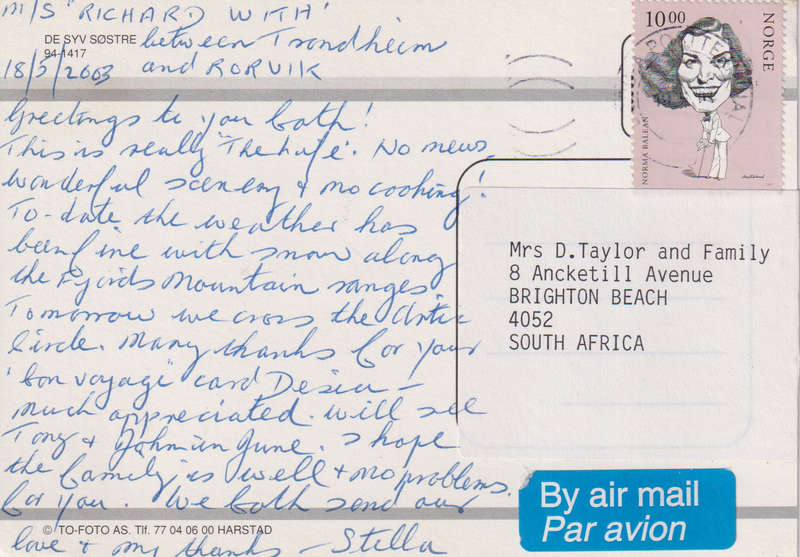 M/S 'RICHARD WITH'
DE SYV SØSTRE between Trondheim
94-1417
18/5/2003 and RORVIK
Greetings to you both!
This is really "The Life". No news,
wonderful scenery & no cooking!
To-date the weather has
been fine with snow along
the Fjords Mountain ranges
Tomorrow we cross the Artic
Circle. Many thanks for your
'bon voyage' card
much appreciated. Will see
Tony & John in June. I hope
the family is well & no problems
for you. We both send our
© TO-FOTO AS. Tlf. 77 04 06 00 HARSTAD
love & my thanks – Stella
10.00
NORGE
NORMA BALEAN
Mrs D.Taylor and Family
8 Ancketill Avenue
BRIGHTON BEACH
4052
SOUTH AFRICA
By air mail
Par avion